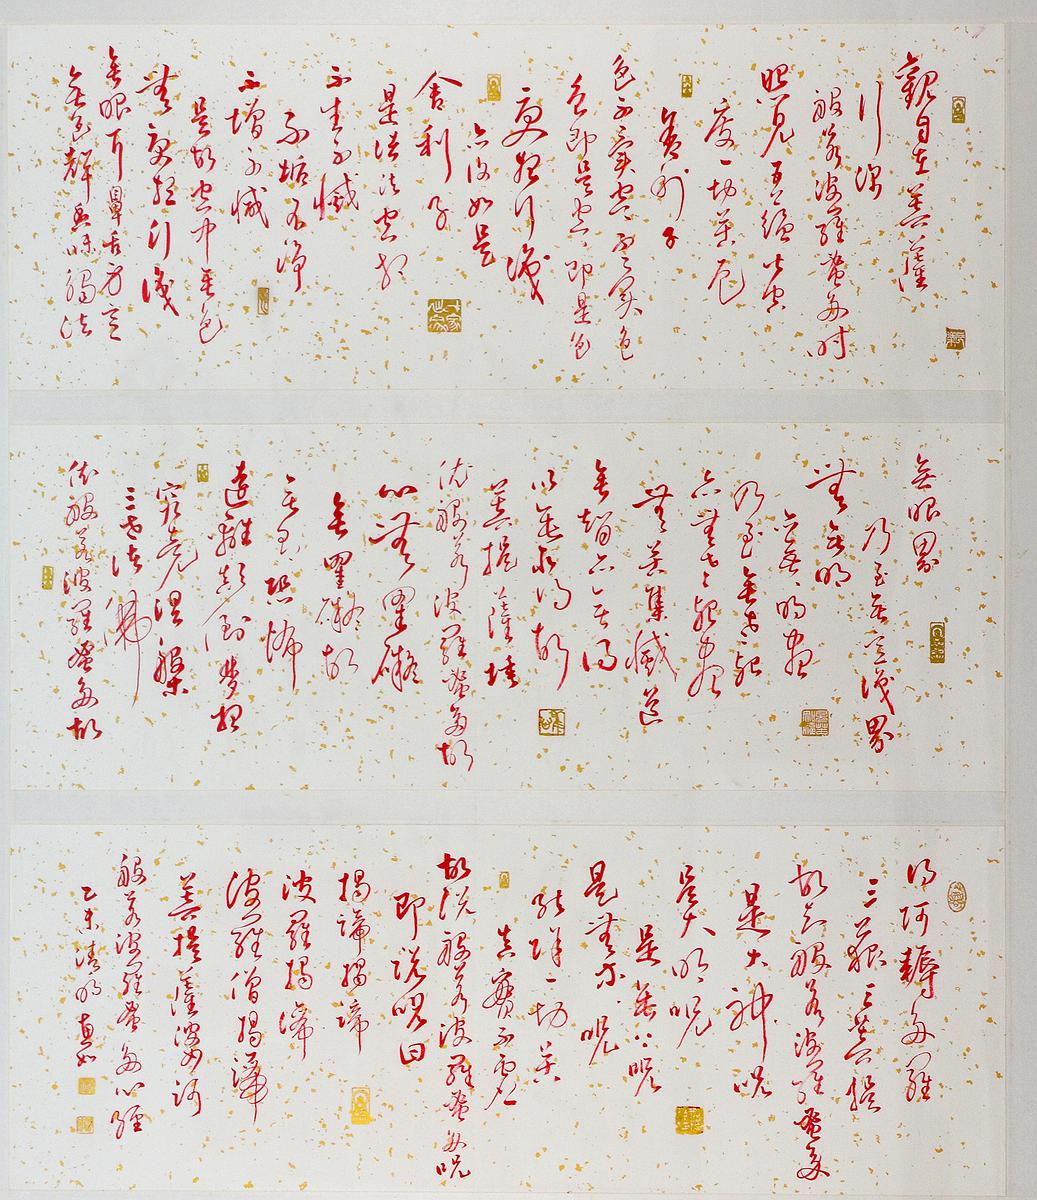 觀自在菩薩
行深
般若波羅蜜多時
照見五蘊皆空
度一切苦厄
舍利子
色不異空空不異色
色即是空空即是色
受想行識
亦復如是
舍利子
是諸法空相
不生不滅
不垢不淨
不增不減
是故空中無色
無受想行識
無眼耳鼻舌身意
無色聲香味觸法
無眼界
乃至無意識界
無無明
亦無無明盡
乃至無老死
亦無老死盡
無苦集滅道
無智亦無得
以無所得故
菩提薩埵
依般若波羅蜜多故
心無罣礙
無罣礙故
無有恐怖
遠離顛倒夢想
究竟涅槃
三世諸佛
依般若波羅蜜多故
得阿耨多羅
三藐三菩提
故知般若波羅蜜多
是大神咒
是大明咒
是無上咒
是無等等咒
能除一切苦
真實不虛
故說般若波羅蜜多咒
即說咒曰
揭諦揭諦
波羅揭諦
波羅僧揭諦
菩提薩婆訶
般若波羅蜜多心經
乙未清明真如